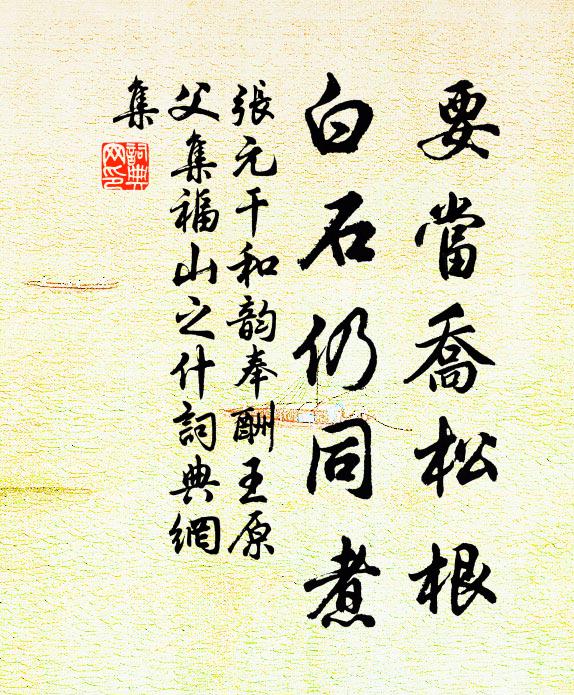 要當喬松根
白石仍同煮
張元干和韵奉酬王原
父集福山之什詞典網
集
詞典
网印